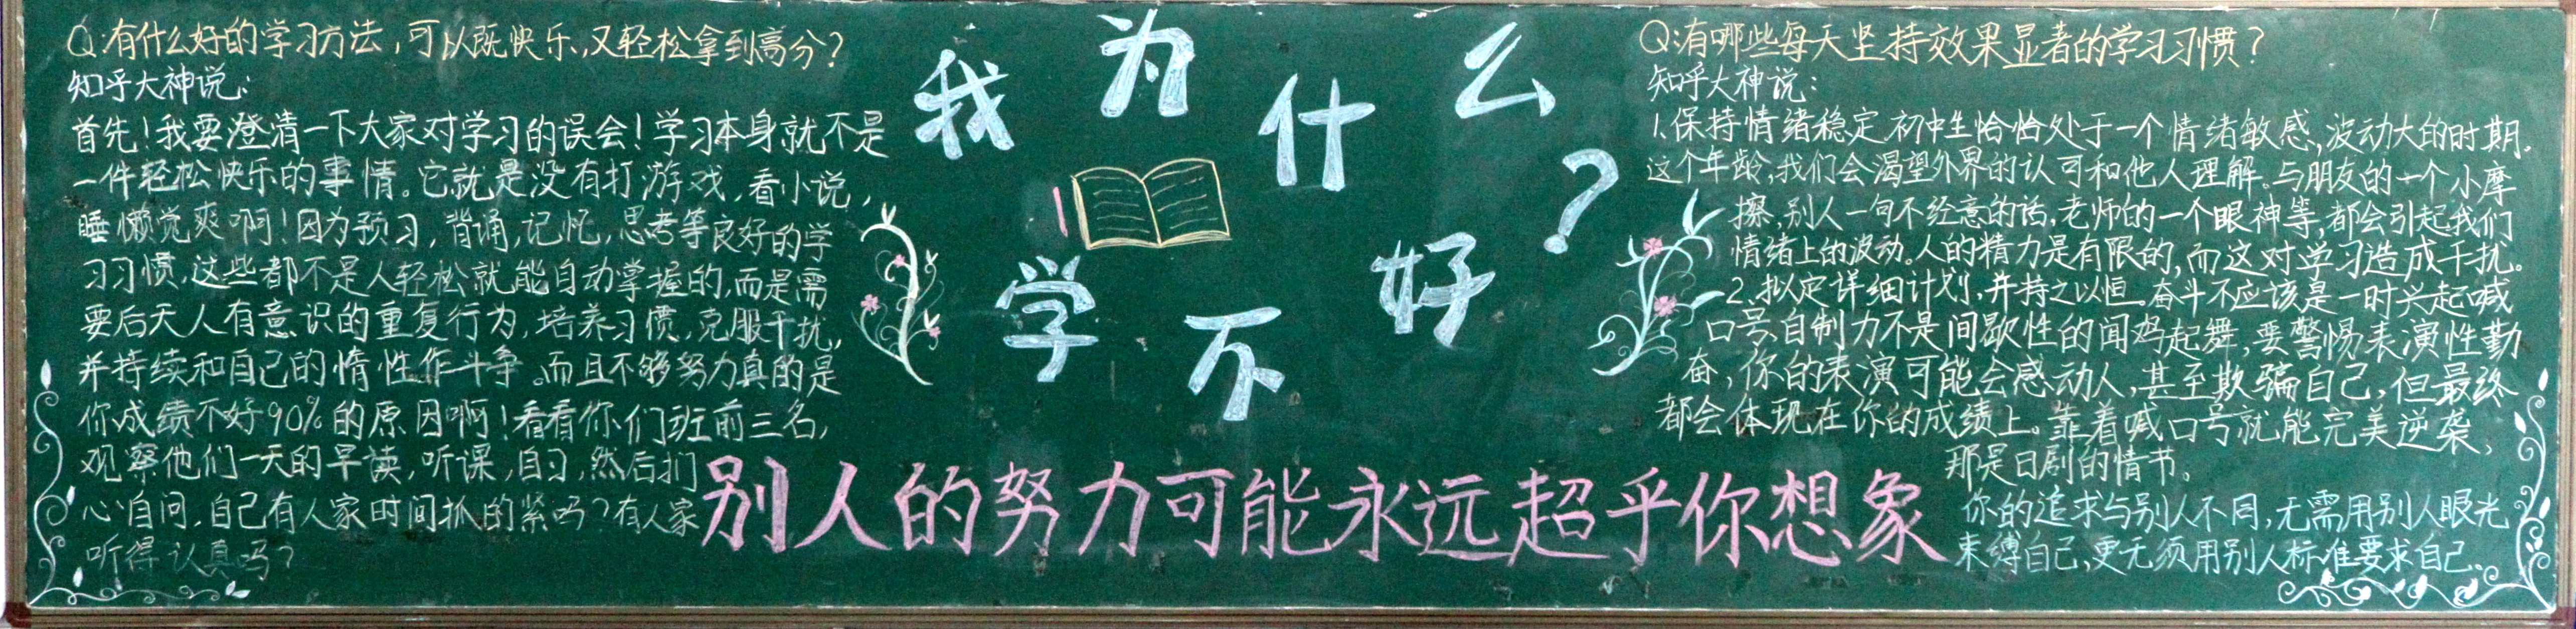 Q:有什么好的学习方法,可以既快乐,又轻松拿到高分?
知乎大神说:
首先!我要澄清一下大家对学习的误会!学习本身就不是
一件轻松快乐的事情。它就是没有打游戏,看小说,
睡懒觉爽啊!因为预习,背诵,记忆,思考等良好的学
习习惯,这些都不是人轻松就能自动掌握的,而是需
要后天人有意识的重复行为,培养习惯,克服干扰,
并持续和自己的惰性作斗争。而且不够努力真的是
你成绩不好90%的原因啊!看看你们班前三名,
观察他们一天的早读,听课,自习,然后扪
心自问,自己有人家时间抓的紧吗?有人家
听得认真吗?
我为什么
学不好?
别人的努力可能永远超乎你想象
Q:有哪些每天坚持效果显著的学习习惯?
知乎大神说:
1.保持情绪稳定,初中生恰恰处于一个情绪敏感,波动大的时期.
这个年龄,我们会渴望外界的认可和他人理解。与朋友的一个小摩
擦,别人一句不经意的话,老师的一个眼神等,都会引起我们
情绪上的波动。人的精力是有限的,而这对学习造成干扰。
2、拟定详细计划,并持之以恒。奋斗不应该是一时兴起喊
口号,自制力不是间歇性的闻鸡起舞,要警惕表演性勤
奋,你的表演可能会感动人,甚至欺骗自己,但最终
都会体现在你的成绩上。靠着喊口号就能完美逆袭,
那是日剧的情节。
你的追求与别人不同,无需用别人眼光
束缚自己,更无须用别人标准要求自己。